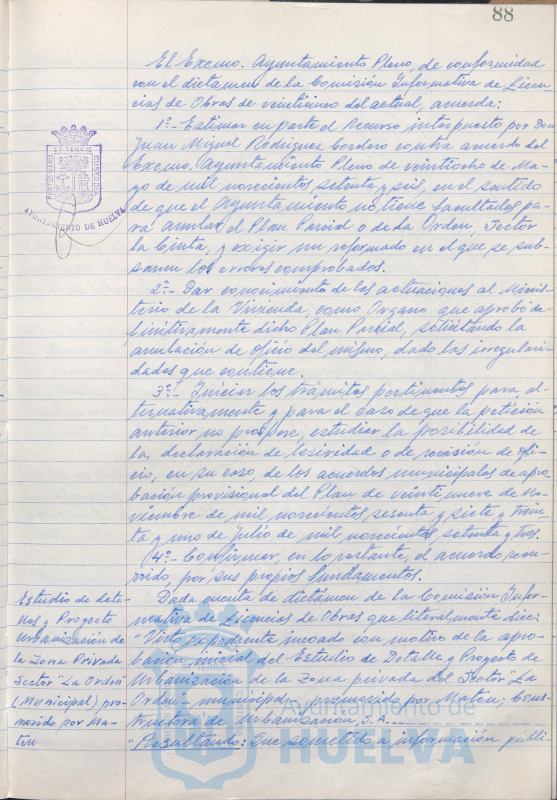 88
El Excmo. Ayuntamiento Pleno, de conformidad
con el dictamen de la Comisión Informativa de Licen
cias de Obras de veintiuno del actual, acuerda:
1º.- Estimar en parte el Recurso interpuesto por Don
Juan Miguel Rodríguez Cordero contra acuerdo del
Excmo. Ayuntamiento Pleno de veintiocho de Ma-
yo de mil novecientos setenta y seis, en el sentido
de que el Ayuntamiento no tiene facultades pa-
ra anular el Plan Parcial o de la Orden, Sector
la Cinta, y exigir un reformado en el que se sub-
sanen los errores comprobados.
2º.- Dar conocimiento de las actuaciones al Minis-
terio de la Vivienda, como Organo que aprobó de-
finitivamente dicho Plan Parcial, solicitando la
anulación de oficio del mismo, dado las irregulari-
dades que contiene.
3º.- Iniciar los trámites pertinentes para al-
ternativamente y para el caso de que la petición
anterior no prospere, estudiar la posibilidad de
la declaración de lesividad o de revisión de ofi-
cio, en su caso, de los acuerdos municipales de apro-
bación provisional del Plan de veintinueve de No-
viembre de mil novecientos sesenta y siete y trein-
ta y uno de Julio de mil novecientos setenta y tres.
4º.- Confirmar, en lo restante, el acuerdo recu-
rrido, por sus propios fundamentos.
Estudio de deta-
lles y Proyecto
Urbanización de
la Zona Privada
Sector "La Orden"
(Municipal) pro-
movido por Ma-
ten
Dada cuenta de dictámen de la Comisión Infor-
mativa de Licencias de Obras que literalmente dice:
"Visto expediente incoado con motivo de la apro-
bación inicial del Estudio de Detalle y Proyecto de
Urbanización de la Zona privada del Sector La
Orden - municipal - promovido por Maten, Cons-
tructora de Urbanización, S.A.
"Resultando: Que sometido a información públi-
AYUNTAMIENTO DE HUELVA
Ayuntamiento de
HUELVA